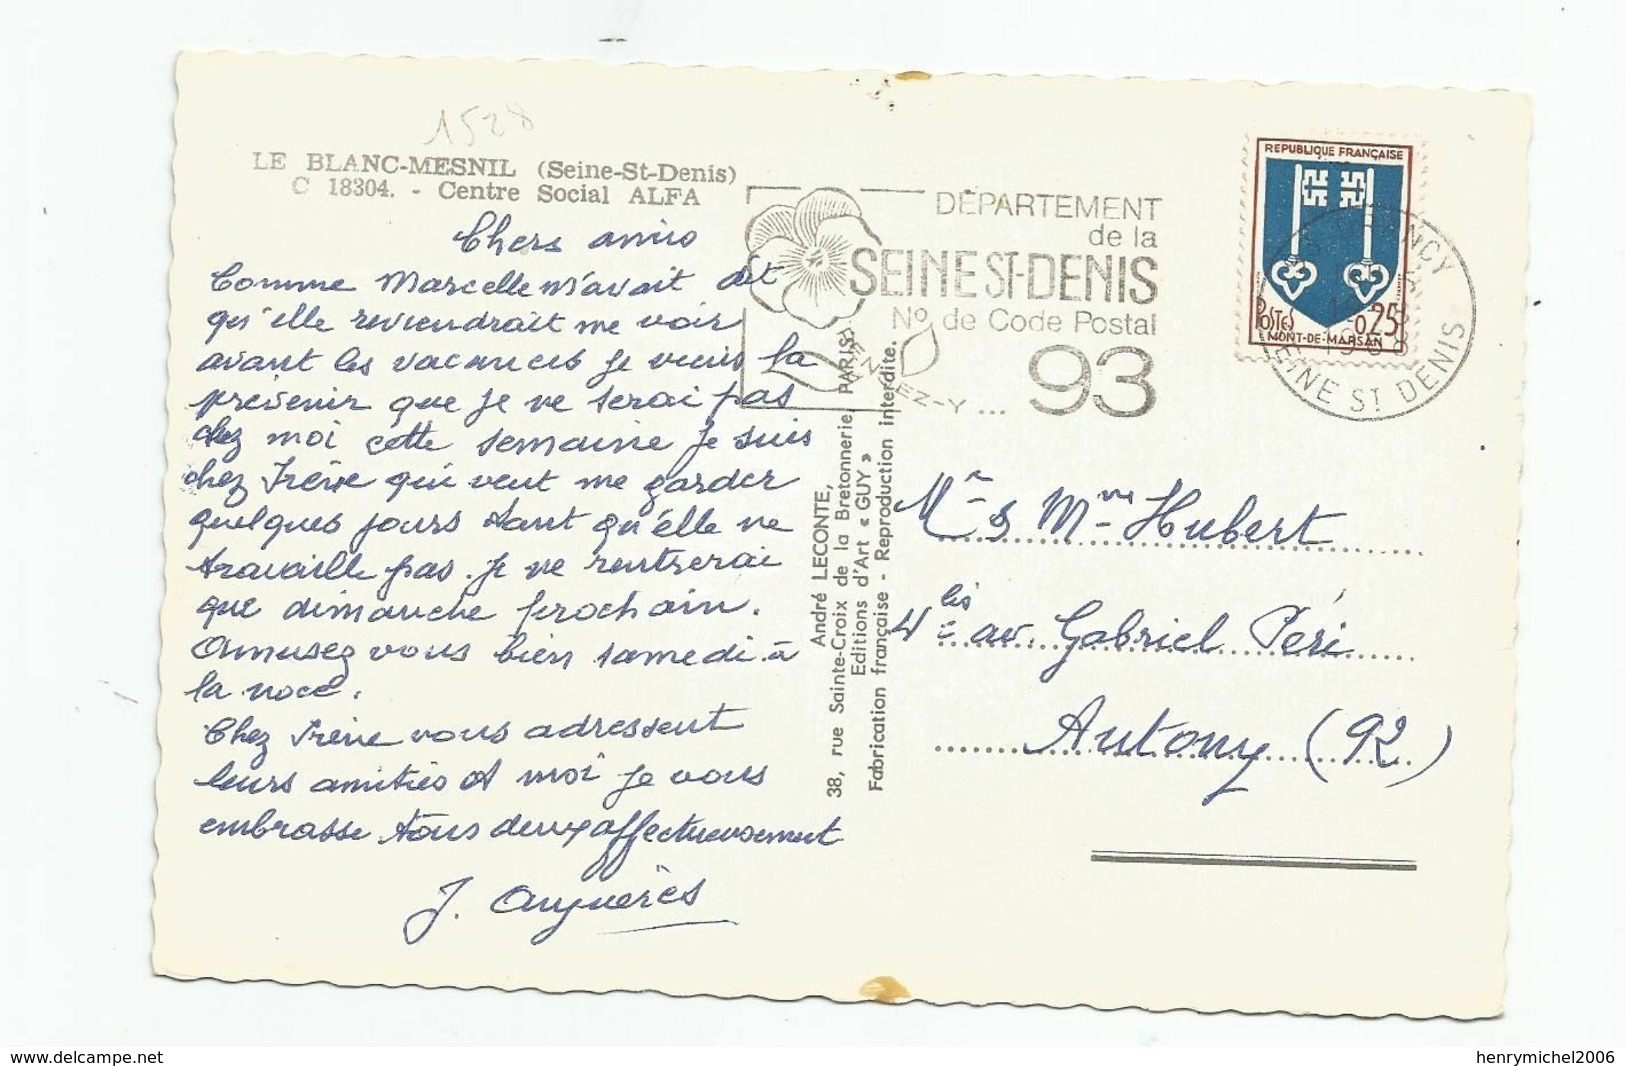 1528
LE BLANC-MESNIL (Seine-St-Denis)
C 18304. - Centre Social ALFA
Chers amis
Comme Marcelle m'avait dit
qu'elle reviendrait me voir
avant les vacances je viens la
prévenir que je ne serai pas
chez moi cette semaine je suis
chez Irène qui veut me garder
quelques jours tant qu'elle ne
travaille pas. Je ne rentrerai
que dimanche prochain.
Amusez vous bien samedi à
la noce.
Chez Irène vous adressent
leurs amitiés et moi je vous
embrasse tous deux affectueusement
J.
André LECONTE,
38, rue Sainte-Croix de la Bretonnerie, PARIS
Editions d'Art « GUY »
Fabrication française - Reproduction interdite.
DÉPARTEMENT
de la
SEINE ST-DENIS
No de Code Postal
93
PENSEZ-Y...
REPUBLIQUE FRANÇAISE
POSTES
0,25
MONT-DE-MARSAN
DRANCY
SEINE ST DENIS
Mr & Mme Hubert
4 bis av. Gabriel Péri
Antony (92)
www.delcampe.net
henrymichel2006